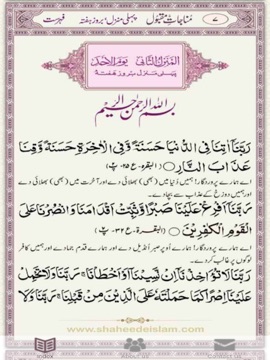 ۷ مُناجاتِ مقبول پہلی منزل، بروز ہفتہ فہرست
پہلی منزل بروز ہفتہ
بِسْمِ اللهِ الرَّحْمٰنِ الرَّحِيْمِ
رَبَّنَا اٰتِنَا فِي الدُّنْيَا حَسَنَةً وَّفِي الْاٰخِرَةِ حَسَنَةً وَّقِنَا
عَذَابَ النَّارِ ○ (البقرہ، ع ۲۵، پ ۲)
اے ہمارے پروردگار! ہمیں دنیا میں (بھی) بھلائی دے اور آخرت میں (بھی) بھلائی دے
اور ہمیں دوزخ کے عذاب سے بچائے۔
رَبَّنَا اَفْرِغْ عَلَيْنَا صَبْرًا وَّثَبِّتْ اَقْدَامَنَا وَانْصُرْنَا عَلَى
الْقَوْمِ الْكٰفِرِيْنَ ○ (البقرہ، ع ۳۲، پ ۲)
اے ہمارے پروردگار! ہمارے اوپر صبر انڈیل دے اور ہمارے قدم جمادے اور ہمیں کافر
لوگوں پر غالب کردے۔
رَبَّنَا لَا تُؤَاخِذْنَا اِنْ نَّسِيْنَا اَوْ اَخْطَاْنَا رَبَّنَا وَلَا تَحْمِلْ
عَلَيْنَا اِصْرًا كَمَا حَمَلْتَهٗ عَلَى الَّذِيْنَ مِنْ قَبْلِنَا رَبَّنَا وَلَا
www.shaheedeislam.com
Index About us Contact us